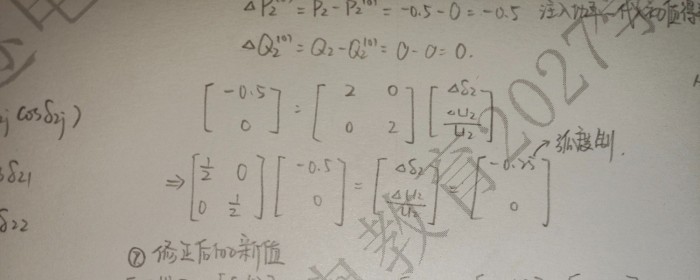 ΔP₂⁽⁰⁾ = P₂ - P₂⁽⁰⁾ = -0.5 - 0 = -0.5 注入功率
ΔQ₂⁽⁰⁾ = Q₂ - Q₂⁽⁰⁾ = 0 - 0 = 0.
cosδ₂j)
[-0.5; 0] = [2 0; 0 2] [Δδ₂; ΔU₂/U₂]
δ₂₁
弧度制.
⇒ [1/2 0; 0 1/2] [-0.5; 0] = [Δδ₂; ΔU₂/U₂] = [-0.25; 0]
δ₂₂
② 修正后的新值
教育2027